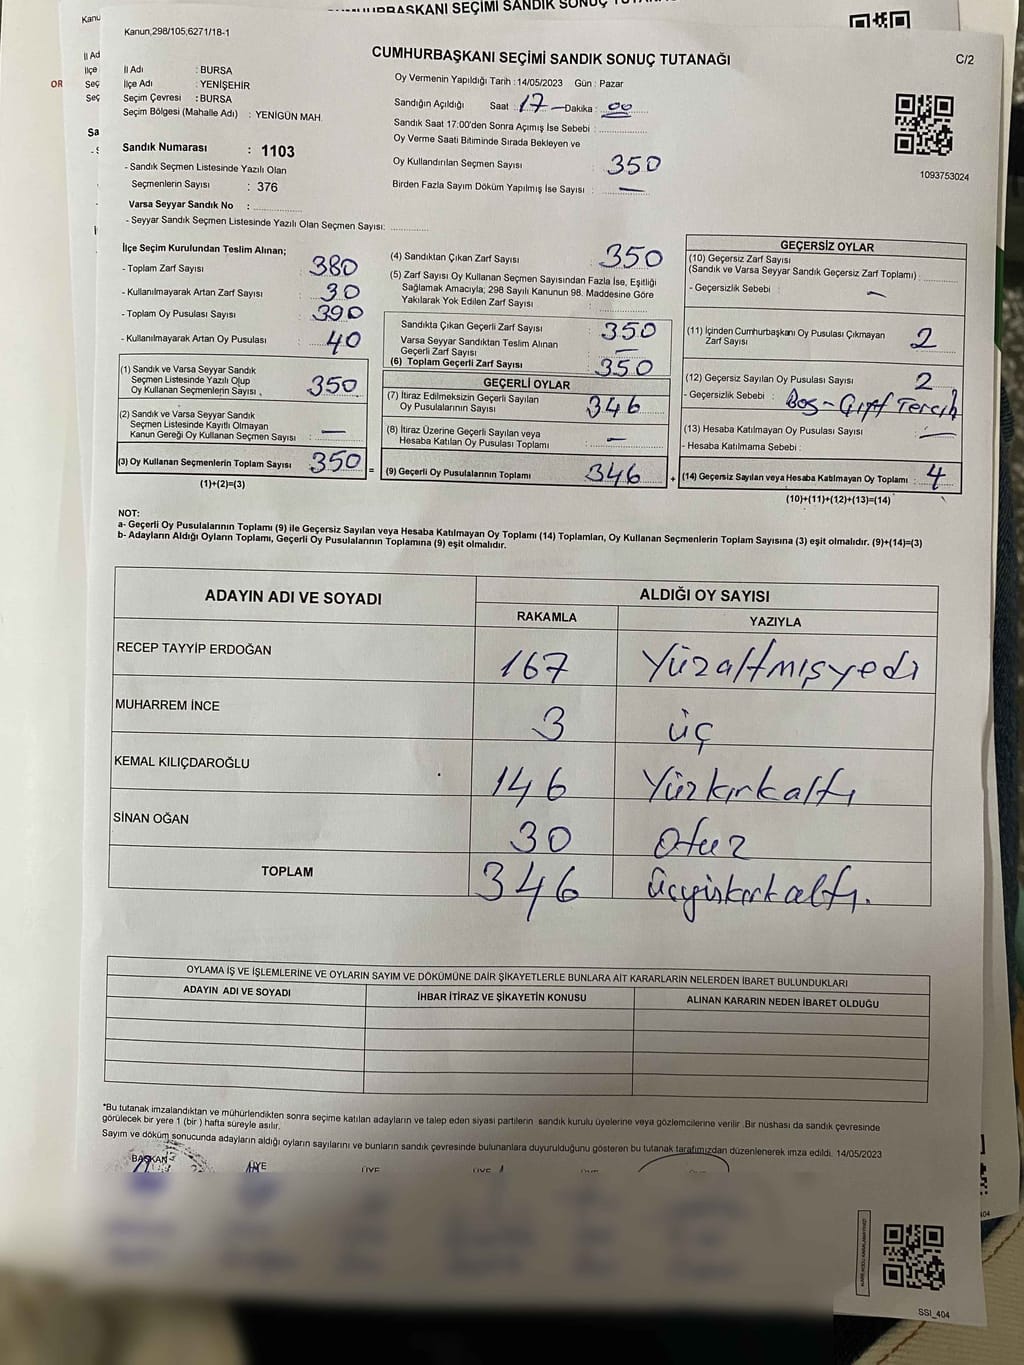 CUMHURBAŞKANI SEÇİMİ SANDIK SONUÇ
Kanu
İl Ad
İlçe
Seç
Seç
OR
Sa
Kanun,298/105,6271/18-1
C/2
CUMHURBAŞKANI SEÇİMİ SANDIK SONUÇ TUTANAĞI
İl Adı : BURSA
İlçe Adı : YENİŞEHİR
Seçim Çevresi : BURSA
Seçim Bölgesi (Mahalle Adı) : YENİGÜN MAH.
Oy Vermenin Yapıldığı Tarih : 14/05/2023 Gün : Pazar
Sandığın Açıldığı Saat : 17 Dakika : 00
Sandık Saat 17:00'den Sonra Açımış İse Sebebi :
Oy Verme Saati Bitiminde Sırada Bekleyen ve
Oy Kullandırılan Seçmen Sayısı : 350
Birden Fazla Sayım Döküm Yapılmış İse Sayısı : —
1093753024
Sandık Numarası : 1103
- Sandık Seçmen Listesinde Yazılı Olan
Seçmenlerin Sayısı : 376
Varsa Seyyar Sandık No :
- Seyyar Sandık Seçmen Listesinde Yazılı Olan Seçmen Sayısı:
İlçe Seçim Kurulundan Teslim Alınan;
- Toplam Zarf Sayısı 380
- Kullanılmayarak Artan Zarf Sayısı : 30
- Toplam Oy Pusulası Sayısı : 390
- Kullanılmayarak Artan Oy Pusulası : 40
(1) Sandık ve Varsa Seyyar Sandık
Seçmen Listesinde Yazılı Olup
Oy Kullanan Seçmenlerin Sayısı : 350
(2) Sandık ve Varsa Seyyar Sandık
Seçmen Listesinde Kayıtlı Olmayan
Kanun Gereği Oy Kullanan Seçmen Sayısı : —
(3) Oy Kullanan Seçmenlerin Toplam Sayısı : 350 =
(1)+(2)=(3)
(4) Sandıktan Çıkan Zarf Sayısı : 350
(5) Zarf Sayısı Oy Kullanan Seçmen Sayısından Fazla İse, Eşitliği
Sağlamak Amacıyla; 298 Sayılı Kanunun 98. Maddesine Göre
Yakılarak Yok Edilen Zarf Sayısı :
Sandıkta Çıkan Geçerli Zarf Sayısı : 350
Varsa Seyyar Sandıktan Teslim Alınan
Geçerli Zarf Sayısı : —
(6) Toplam Geçerli Zarf Sayısı : 350
GEÇERLİ OYLAR
(7) İtiraz Edilmeksizin Geçerli Sayılan
Oy Pusulalarının Sayısı : 346
(8) İtiraz Üzerine Geçerli Sayılan veya
Hesaba Katılan Oy Pusulası Toplamı : —
(9) Geçerli Oy Pusulalarının Toplamı : 346 +
GEÇERSİZ OYLAR
(10) Geçersiz Zarf Sayısı
(Sandık ve Varsa Seyyar Sandık Geçersiz Zarf Toplamı) :
- Geçersizlik Sebebi : —
(11) İçinden Cumhurbaşkanı Oy Pusulası Çıkmayan
Zarf Sayısı : 2
(12) Geçersiz Sayılan Oy Pusulası Sayısı : 2
- Geçersizlik Sebebi : Boş - Çift Tercih
(13) Hesaba Katılmayan Oy Pusulası Sayısı : —
- Hesaba Katılmama Sebebi :
(14) Geçersiz Sayılan veya Hesaba Katılmayan Oy Toplamı : 4
(10)+(11)+(12)+(13)=(14)
NOT:
a- Geçerli Oy Pusulalarının Toplamı (9) ile Geçersiz Sayılan veya Hesaba Katılmayan Oy Toplamı (14) Toplamları, Oy Kullanan Seçmenlerin Toplam Sayısına (3) eşit olmalıdır. (9)+(14)=(3)
b- Adayların Aldığı Oyların Toplamı, Geçerli Oy Pusulalarının Toplamına (9) eşit olmalıdır.
ADAYIN ADI VE SOYADI
ALDIĞI OY SAYISI
RAKAMLA YAZIYLA
RECEP TAYYİP ERDOĞAN 167 Yüzaltmışyedi
MUHARREM İNCE 3 üç
KEMAL KILIÇDAROĞLU 146 Yüzkırkaltı
SİNAN OĞAN 30 Otuz
TOPLAM 346 Üçyüzkırkaltı.
OYLAMA İŞ VE İŞLEMLERİNE VE OYLARIN SAYIM VE DÖKÜMÜNE DAİR ŞİKAYETLERLE BUNLARA AİT KARARLARIN NELERDEN İBARET BULUNDUKLARI
ADAYIN ADI VE SOYADI İHBAR İTİRAZ VE ŞİKAYETİN KONUSU ALINAN KARARIN NEDEN İBARET OLDUĞU
*Bu tutanak imzalandıktan ve mühürlendikten sonra seçime katılan adayların ve talep eden siyasi partilerin sandık kurulu üyelerine veya gözlemcilerine verilir .Bir nüshası da sandık çevresinde
görülecek bir yere 1 (bir ) hafta süreyle asılır.
Sayım ve döküm sonucunda adayların aldığı oyların sayılarını ve bunların sandık çevresinde bulunanlara duyurulduğunu gösteren bu tutanak tarafımızdan düzenlenerek imza edildi. 14/05/2023
BAŞKAN ÜYE ÜYE ÜYE
SSI_404